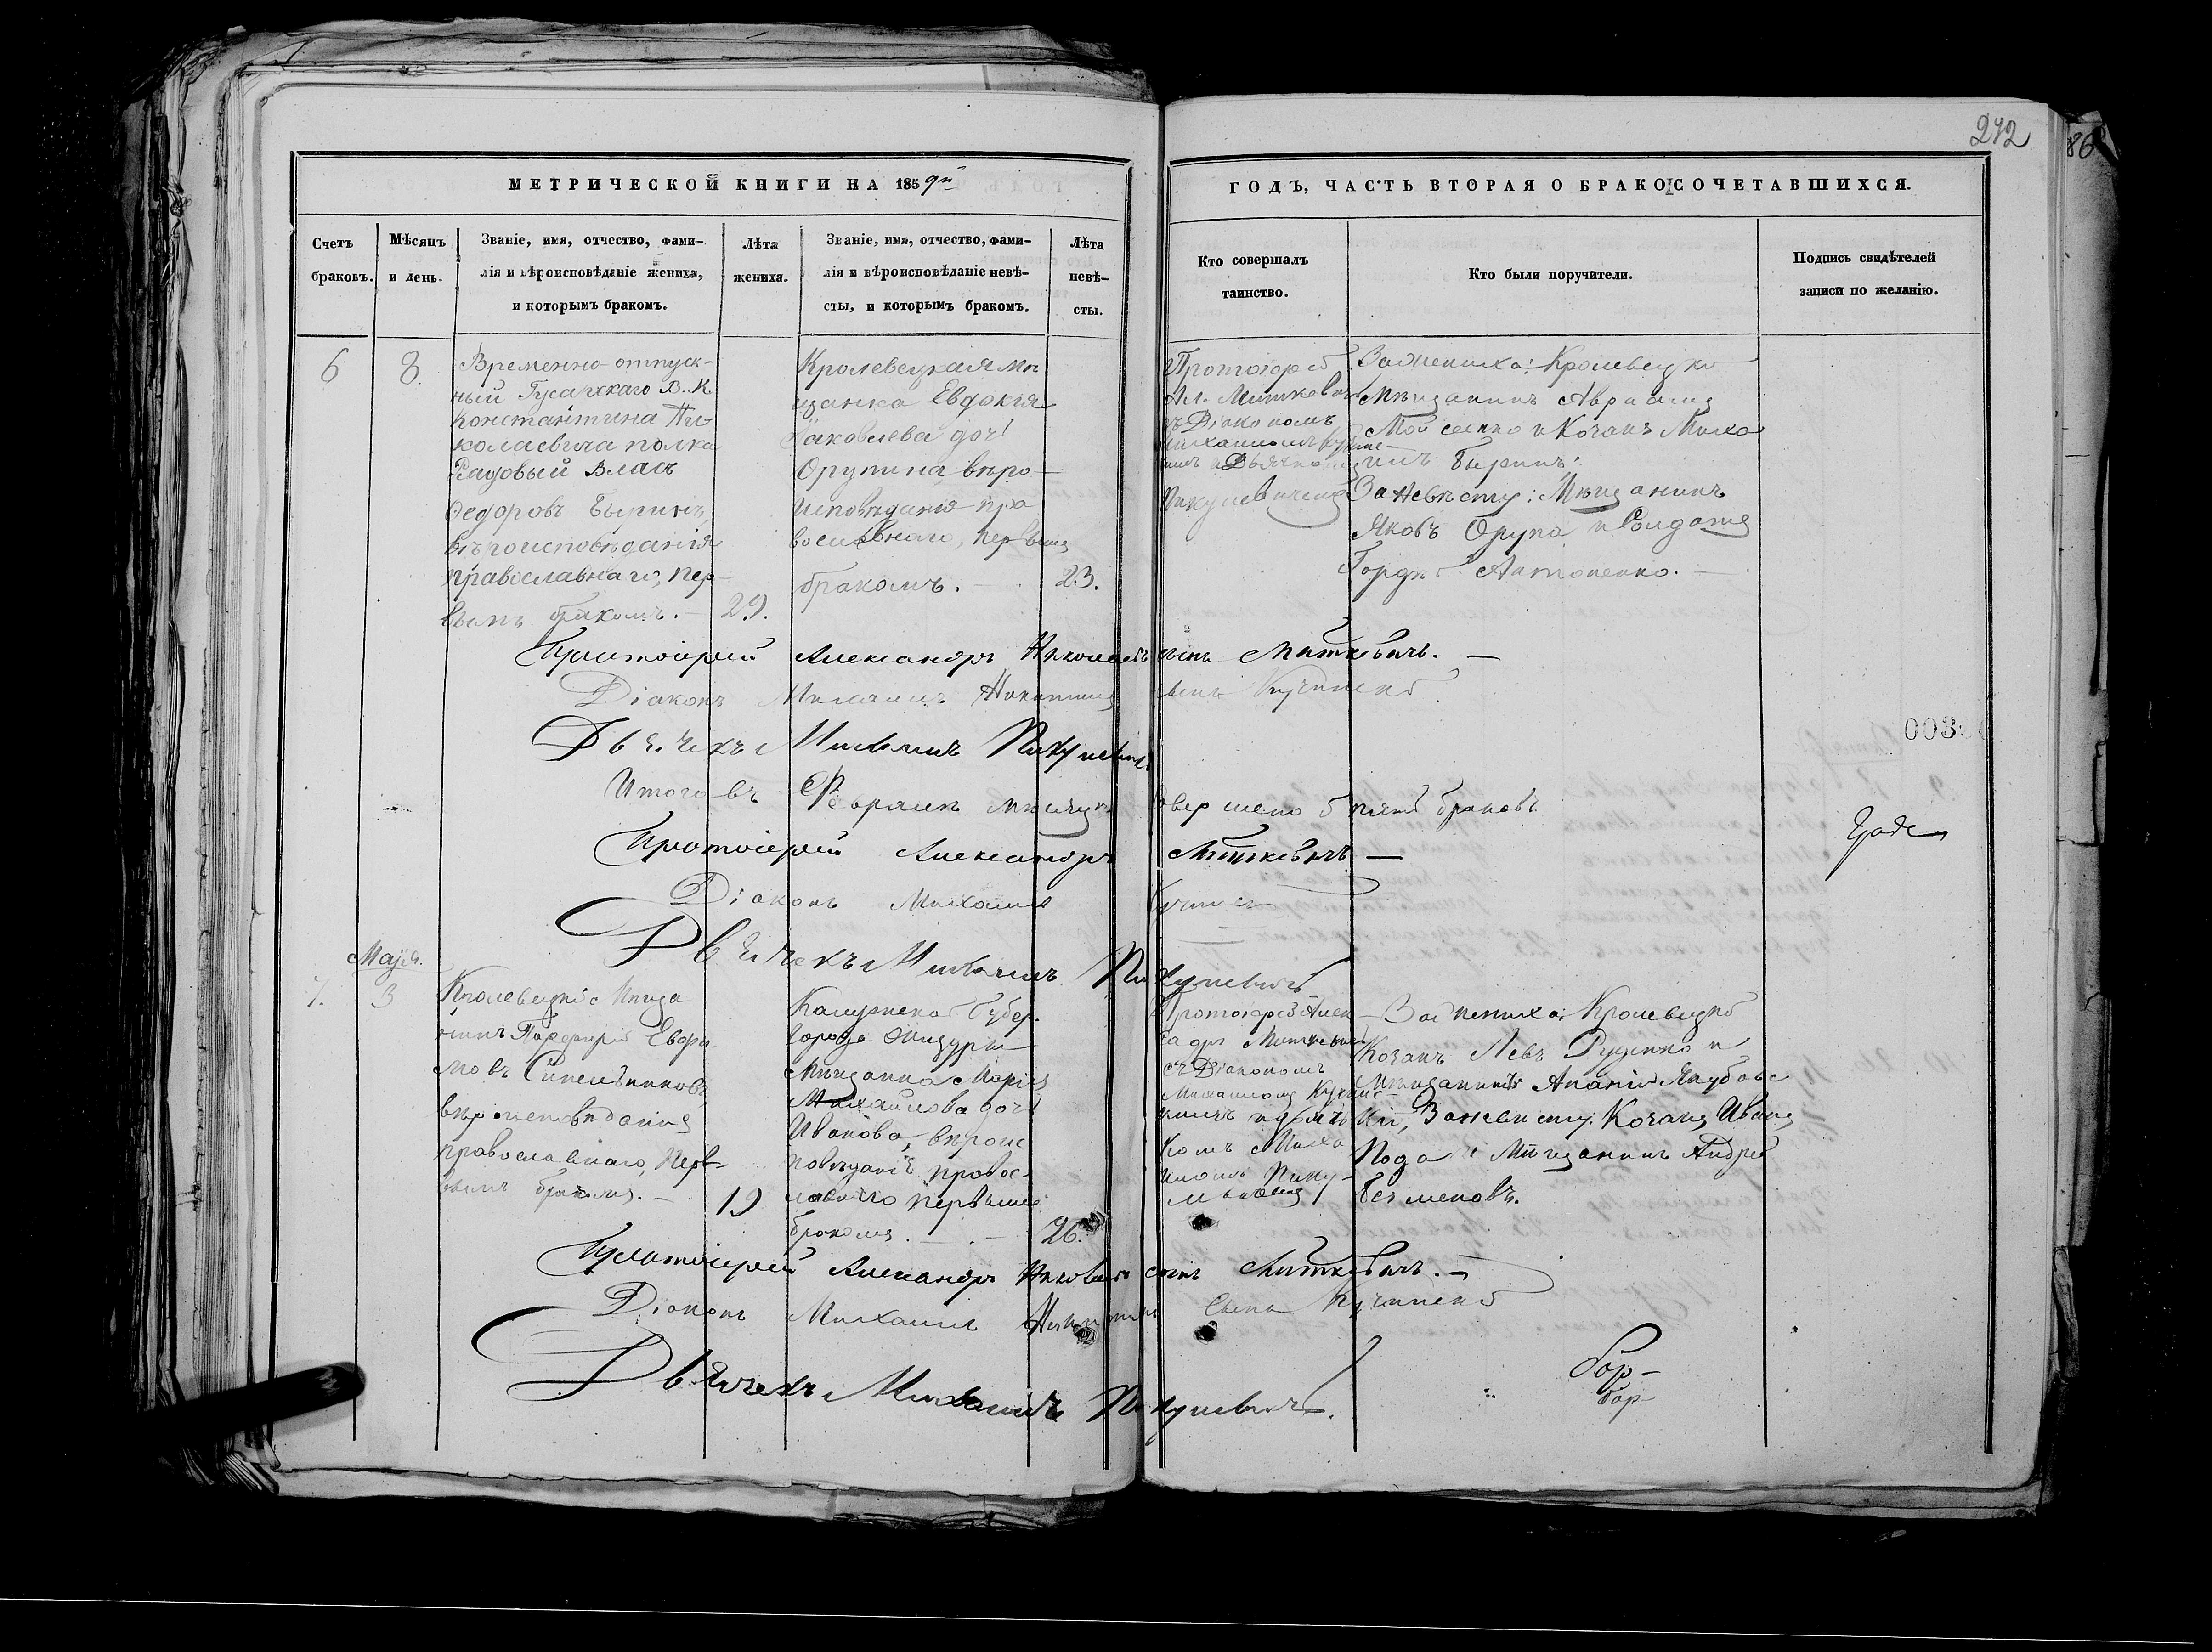 242
86
МЕТРИЧЕСКОЙ КНИГИ НА 1859й
ГОДЪ, ЧАСТЬ ВТОРАЯ О БРАКОСОЧЕТАВШИХСЯ.
Счетъ
браковъ.
Мѣсяцъ
и день.
Званіе, имя, отчество, фами-
лія и вѣроисповѣданіе жениха,
и которымъ бракомъ.
Лѣта
жениха.
Званіе, имя, отчество, фами-
лія и вѣроисповѣданіе невѣ-
сты, и которымъ бракомъ.
Лѣта
невѣ-
сты.
Кто совершалъ
таинство.
Кто были поручители.
Подпись свидѣтелей
записи по желанію.
6
8.
Временно отпуск-
ный Гусарскаго В. К.
Константина Ни-
колаевича полка
Рядовый Власъ
Федоровъ Быринъ,
вѣроисповѣданія
православнаго, пер-
вымъ бракомъ. —
29.
Кролевецкая мѣ
щанка Евдокія
Яковлева дочь
Орупина вѣро-
исповѣданія пра
вославнаго, первымъ
бракомъ.
23.
Протоіерей
Ал. Миткевичъ
съ Діакономъ
Михаиломъ
Пикулевичемъ
За жениха: Кролевецкій
Мѣщанинъ Авраамъ
и Козакъ Миха
илъ Быринъ:
За Невѣсту: Мѣщанинъ
Яковъ Орупа и Солдатъ
Гордѣй Антоненко. —
Протоіерей Александръ Николаевъ сынъ Миткевичъ. —
Діаконъ Михаилъ Никитинъ сынъ
Дьячекъ Михаилъ Пикулевичъ
Итого въ Февралѣ мѣсяцѣ совершено 5 пять браковъ
003
Протоіерей Александръ Миткевичъ —
Діаконъ Михаилъ
Дьячекъ Михаилъ Пикулевичъ
Маія.
7.
3
Кролевецкій Мѣща
нинъ Порфирій Евфи
мовъ Синельниковъ,
вѣроисповѣданія
православнаго, пер-
вымъ бракомъ. —
19
Калужской Губер.
города Жиздры
Мѣщанка Марія
Михайлова дочь
Иванова, вѣроис
повѣданія правос-
лавнаго первымъ
бракомъ. —
26.
Протоіерей Алек
сандръ Миткевичъ
съ Діакономъ
Михаиломъ
комъ Миха
иломъ Пику-
За жениха: Кролевецкій
Козакъ Левъ Руденко и
Мѣщанинъ Ананій
За невѣсту: Козакъ Иванъ
и Мѣщанинъ Андрей
Протоіерей Александръ Николаевъ сынъ Миткевичъ. —
Діаконъ Михаилъ Никитинъ сынъ
Дьячекъ Михаилъ Пикулевичъ.